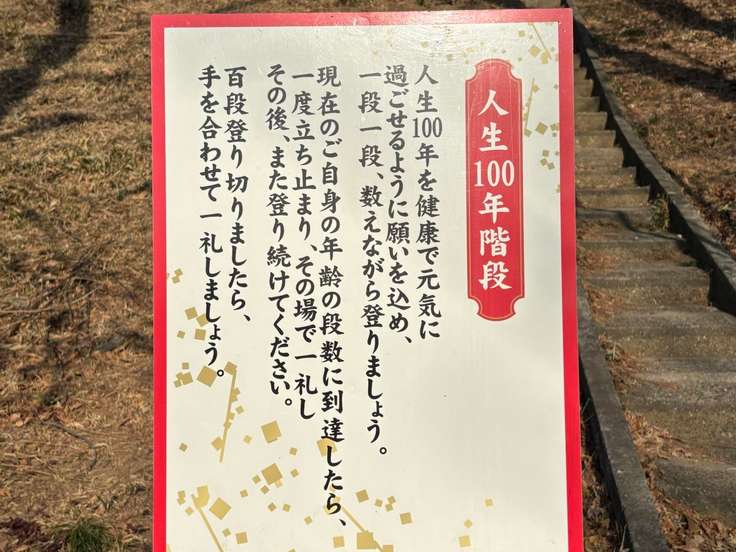 人生100年階段
人生100年を健康で元気に
過ごせるように願いを込め、
一段一段、数えながら登りましょう。
現在のご自身の年齢の段数に到達したら、
一度立ち止まり、その場で一礼し
その後、また登り続けてください。
百段登り切りましたら、
手を合わせて一礼しましょう。